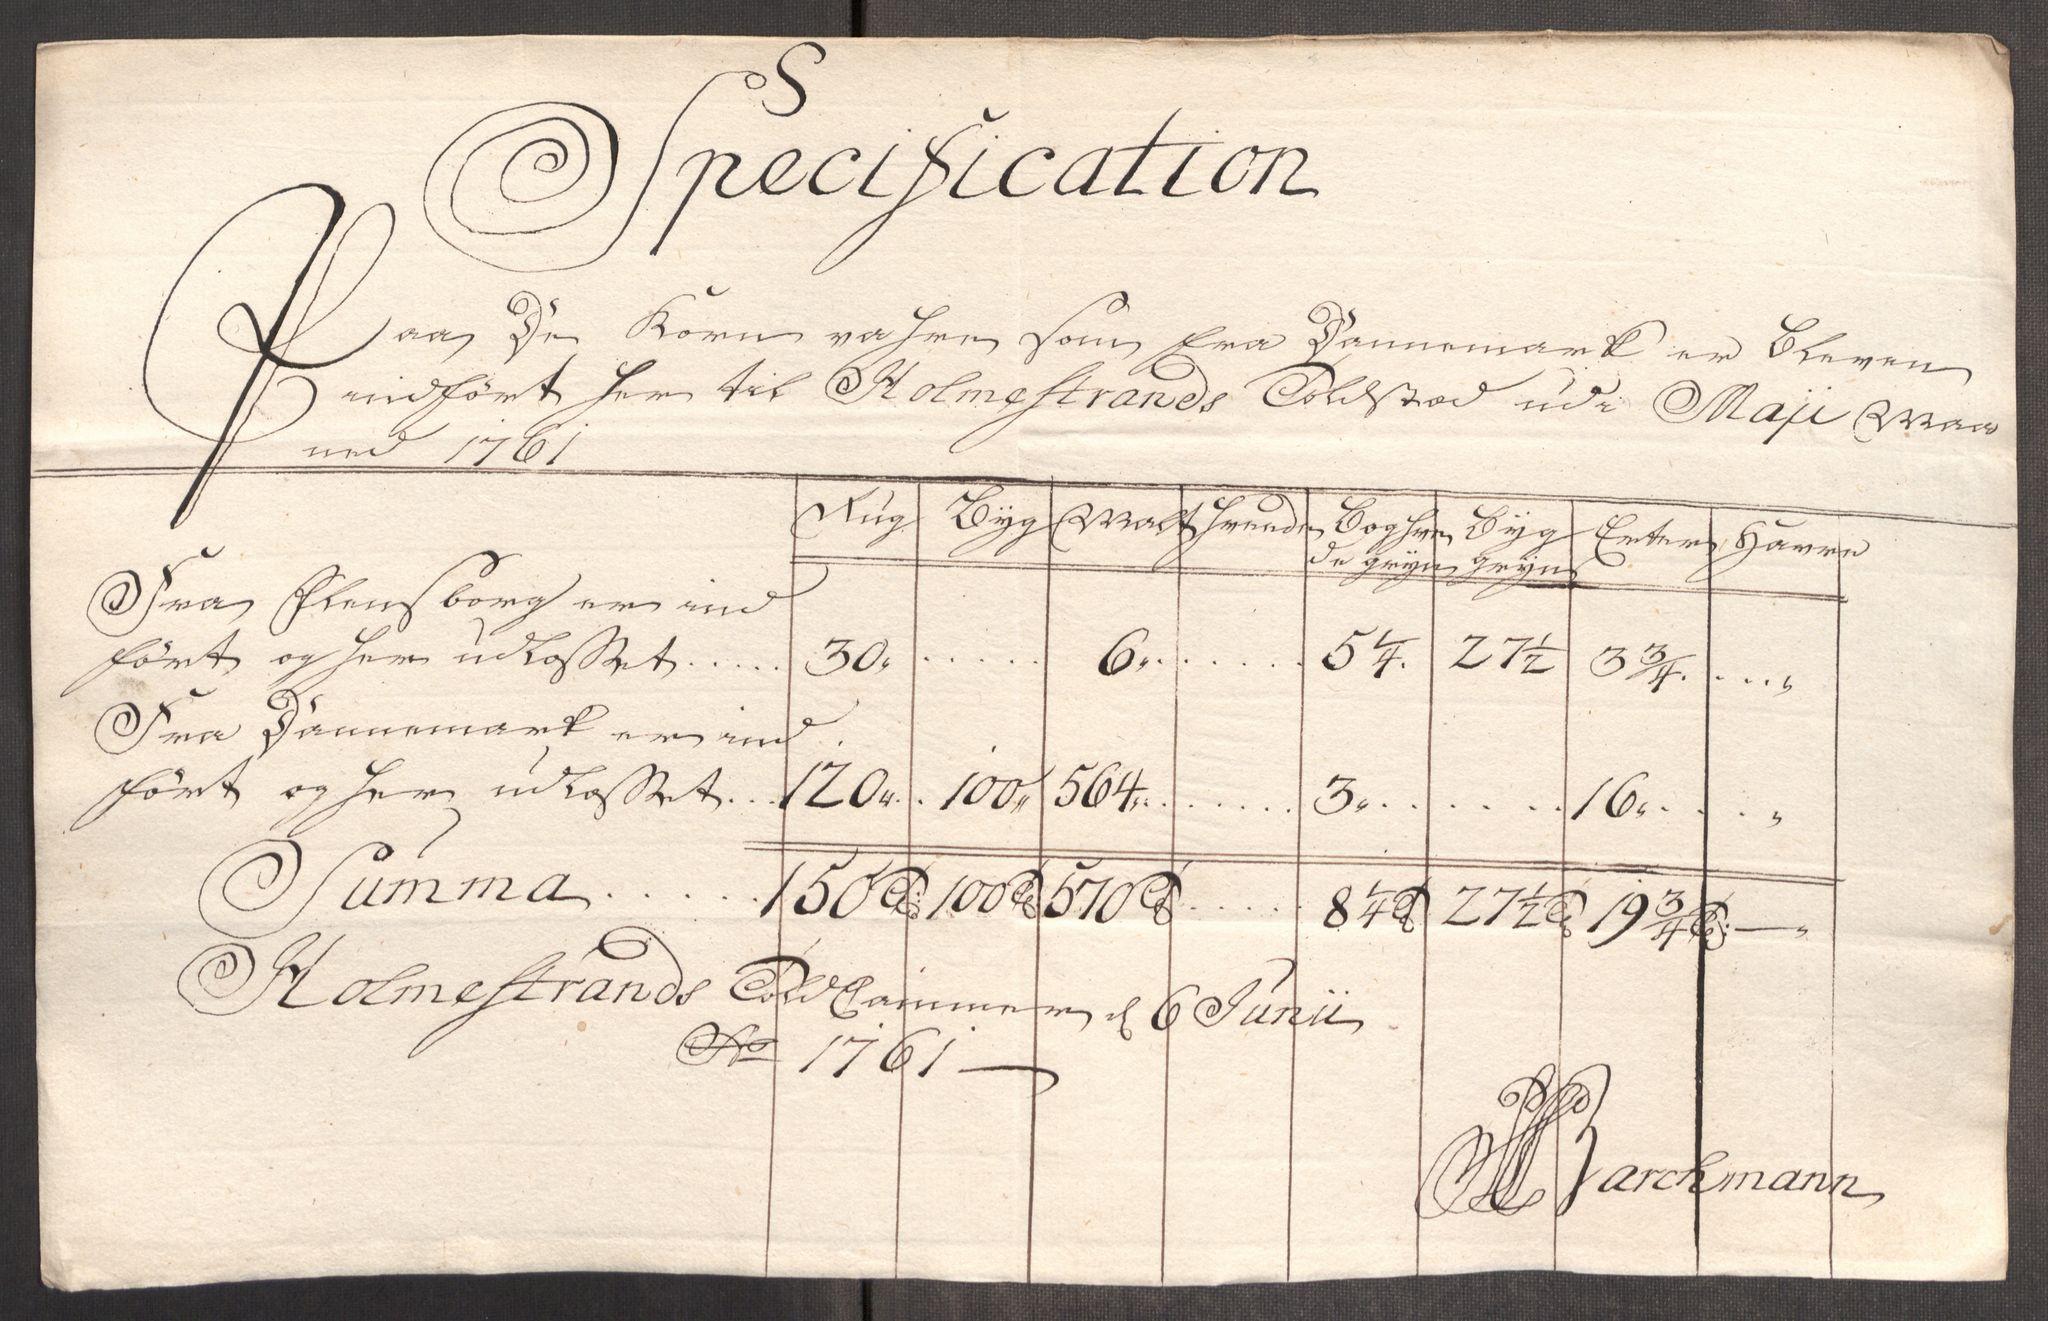 Specification
Paa De Korn vahre som Fra Dannemark er bleven
indført her til Holmestrands Toldsted udi Maji Maa
ned 1761
Rug Byg Malt Hvede Boghve Byg Erter Havre
de gryn gryn
Fra Flensborg er ind
ført og her udlosset ..... 30„ ...... 6„ ...... 5 1/4. 27 1/2 3 3/4. .... „
Fra Dannemark er ind
ført og her udlosset ... 120„ .. 100„ 564„ ...... 3„ ...... 16„ .... „
Summa ...... 150 Td 100 Td 570 Td ..... 8 1/4 Td 27 1/2 Td 19 3/4 Td — „
Holmestrands Told Cammer d 6 Junii
Ao 1761 —
Barchmann